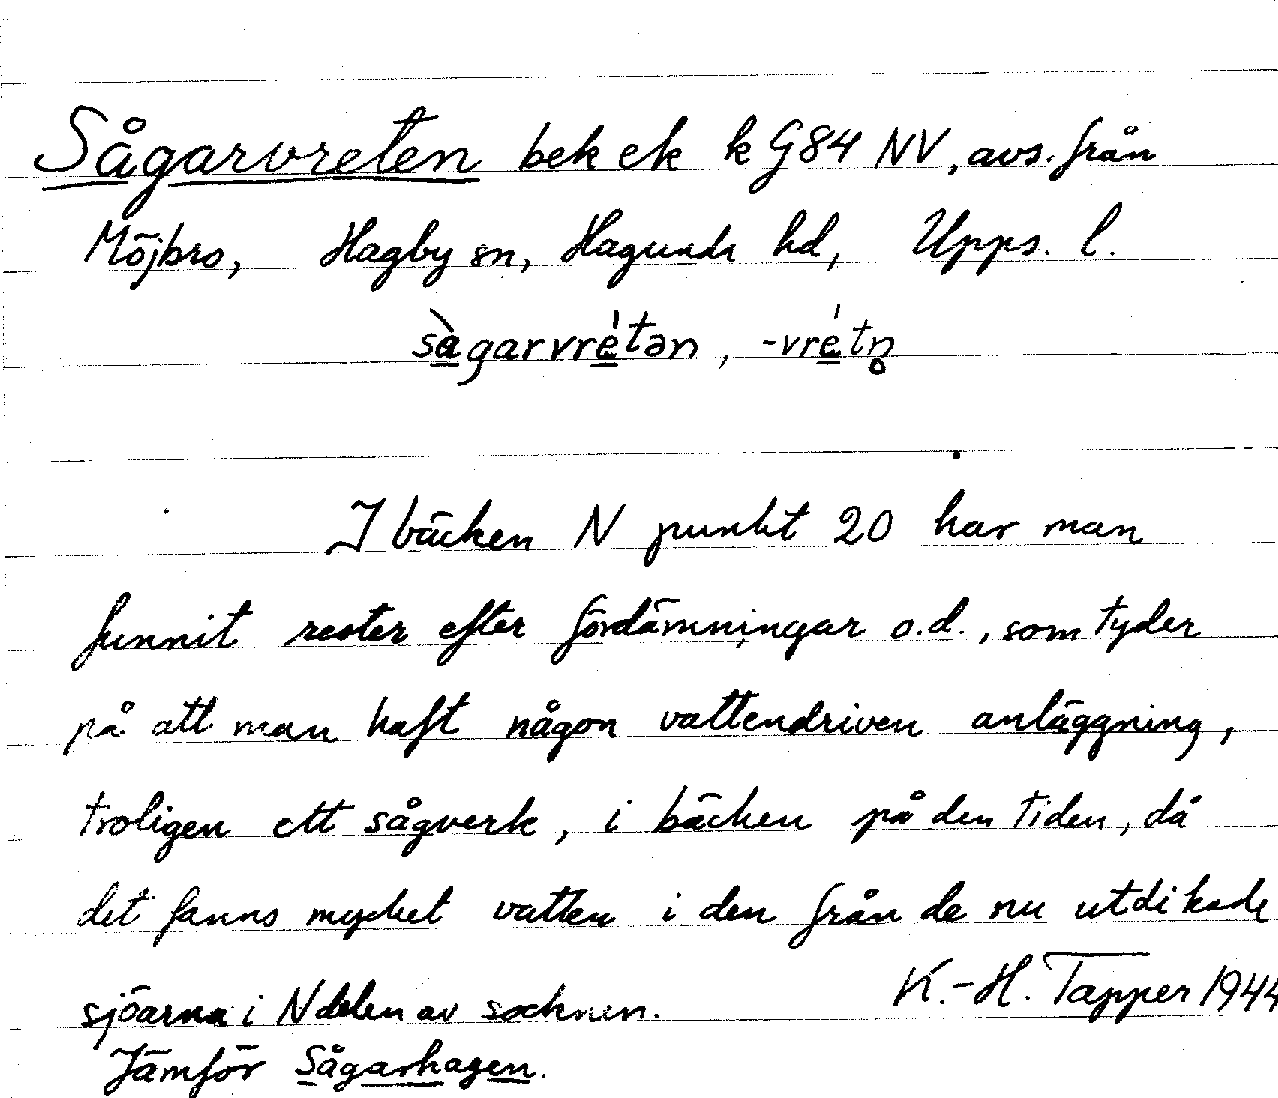 Sågarvreten bek ek k G84 NV, avs. från
Möjbro, Hagby sn, Hagunda hd, Upps. l.
sàgarvré́tən, -vré́tn̥
I bäcken N punkt 20 har man
funnit rester efter fördämningar o.d., som tyder
på att man haft någon vattendriven anläggning,
troligen ett sågverk, i bäcken på den tiden, då
det fanns mycket vatten i den från de nu utdikade
sjöarna i N delen av socknen.
K.-H. Tapper 1944
Jämför Sågarhagen.